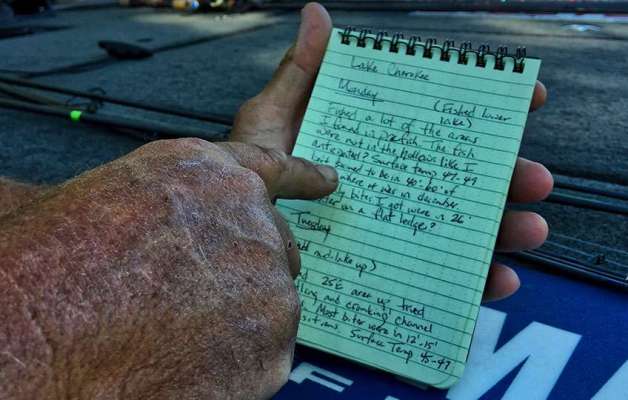 Lake Cherokee
Monday (Fished lower
lake)
Fished a lot of the areas
I found in The fish
were not in the like I
anticipated? Surface temp 47-49
Bait seemed to be in 40'-60' of
where it was in december.
bites I got were in 26'
on a flat ledge?
Tuesday
mid-lake up)
25E area up, tried
and cranking channel
Most bites were in 12'-15'
Surface Temp 45-47